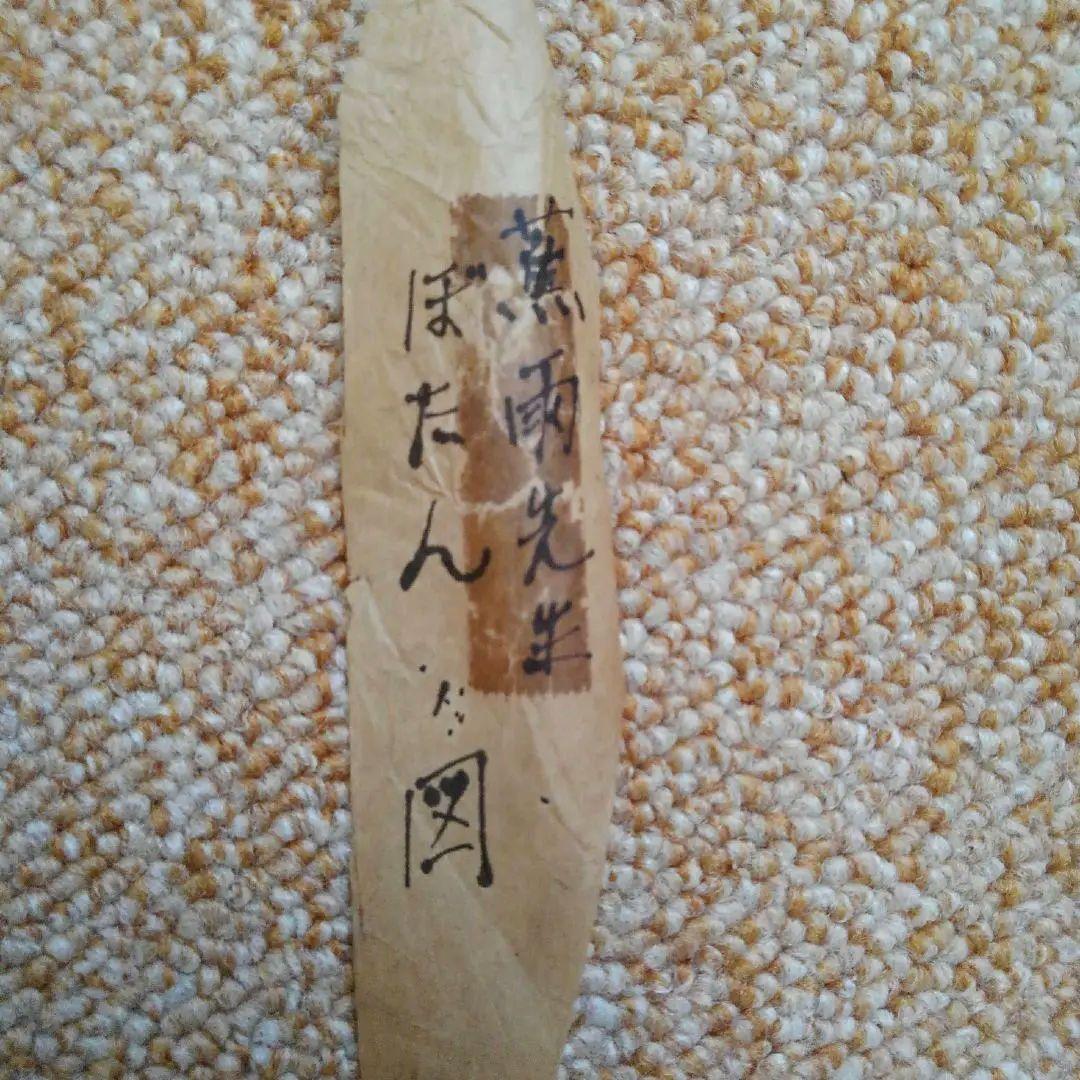 蕉雨先生
ぼたん図